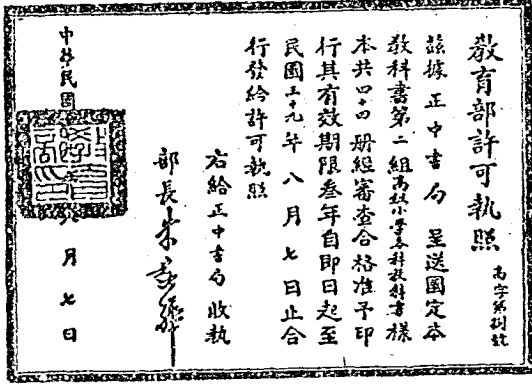 教育部許可執照
高字第捌號
茲據正中書局呈送國定本
教科書第二組高級小學各科教科書樣
本共四十四册經審查合格准予印
行其有效期限叁年自即日起至
民國三十九年八月七日止合
行發給許可執照
右給正中書局收執
部長朱家驊
中華民國
八月七日